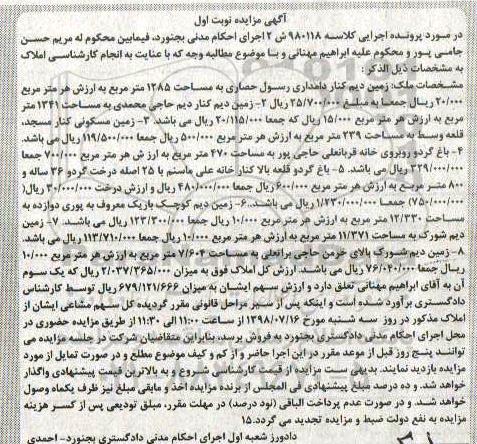 آگهی مزایده نوبت اول
در مورد پرونده اجرایی کلاسه ۹۸۰۱۱۸ ش ۲ اجرای احکام مدنی بجنورد، فیمابین محکوم له مریم حسن
جامی پور و محکوم علیه ابراهیم مهنانی و با موضوع مطالبه وجه که با عنایت به انجام کارشناسی املاک
به مشخصات ذیل الذکر:
مشخصات ملک: زمین دیم کنار دامداری رسول حصاری به مساحت ۱۲۸۵ متر مربع به ارزش هر متر مربع
۲۰/۰۰۰ ریال جمعا به مبلغ ۲۵/۷۰۰/۰۰۰ ریال ۲- زمین دیم کنار دیم حاجی محمدی به مساحت ۱۳۴۱ متر
مربع به ارزش هر متر مربع ۱۵/۰۰۰ ریال که جمعا ۲۰/۱۱۵/۰۰۰ ریال می باشد. ۳- زمین مسکونی کنار مسجد،
قلعه وسط به مساحت ۲۳۹ متر مربع به ارزش هر متر مربع ۵۰۰/۰۰۰ ریال جمعا ۱۱۹/۵۰۰/۰۰۰ ریال می باشد.
۴- باغ گردو روبروی خانه قربانعلی حاجی پور به مساحت ۴۷۰ متر مربع به ارز ش هر متر مربع ۷۰۰/۰۰۰ جمعا
۳۲۹/۰۰۰/۰۰۰ ریال می باشد. ۵- باغ گردو قلعه بالا کنار خانه علی ماسنم با ۲۵ اصله درخت گردو ۳۶ ساله و
۸۰۰ متر مربع به ارزش هر متر مربع ۶۰۰/۰۰۰ ریال جمعا ۴۸۰/۰۰۰/۰۰۰ ریال و ارزش درخت ۳۰/۰۰۰/۰۰۰ ریال(
۷۵۰/۰۰۰/۰۰۰) جمعا ۱/۲۳۰/۰۰۰/۰۰۰ ریال می باشد.. ۶- زمین دیم کوچک باریک معروف به پوری دوازده به
مساحت ۱۲/۳۳۰ متر مربع به ارزش هر متر مربع ۱۰/۰۰۰ ریال جمعا ۱۲۳/۳۰۰/۰۰۰ ریال می باشد. ۷- زمین
دیم شورک به مساحت ۱۱/۳۷۱ متر مربع به ارزش هر متر مربع ۱۰/۰۰۰ ریال جمعا ۱۱۳/۷۱۰/۰۰۰ ریال می باشد.
۸- زمین دیم شورک بالای خرمن حاجی براتعلی به مساحت ۷/۶۰۴ متر مربع به ارزش هر متر مربع ۱۰/۰۰۰
ریال جمعا ۷۶/۰۴۰/۰۰۰ ریال می باشد. ارزش کل املاک فوق به میزان ۲/۰۳۷/۳۶۵/۰۰۰ ریال که یک سوم
آن به آقای ابراهیم مهنانی تعلق دارد و ارزش سهم ایشان به میزان ۶۷۹/۱۲۱/۶۶۶ ریال توسط کارشناس
دادگستری برآورد شده است و اینکه پس از سیر مراحل قانونی مقرر گردیده کل سهم مشاعی ایشان از
املاک مذکور در روز سه شنبه مورخ ۱۳۹۸/۰۷/۱۶ از ساعت ۱۱:۰۰ الی ۱۱:۳۰ از طریق مزایده حضوری در
محل اجرای احکام مدنی دادگستری بجنورد به فروش برسد، بنابراین متقاضیان شرکت در جلسه مزایده می
توانند پنج روز قبل از موعد مقرر در این اجرا حاضر و از کم و کیف موضوع مطلع و در صورت تمایل از مورد
مزایده بازدید نمایند. بدیهی ست مزایده از قیمت کارشناسی شروع و به بالاترین قیمت پیشنهادی واگذار
خواهد شد. و ده درصد مبلغ پیشنهادی فی المجلس از برنده مزایده اخذ و مابقی مبلغ نیز ظرف یکماه وصول
خواهد شد. و در صورت عدم پرداخت الباقی (نود درصد) در مهلت مقرر، مبلغ تودیعی پس از کسر هزینه
مزایده به نفع دولت ضبط و مزایده تجدید می گردد.۱۵
دادورز شعبه اول اجرای احکام مدنی دادگستری بجنورد- احمدی